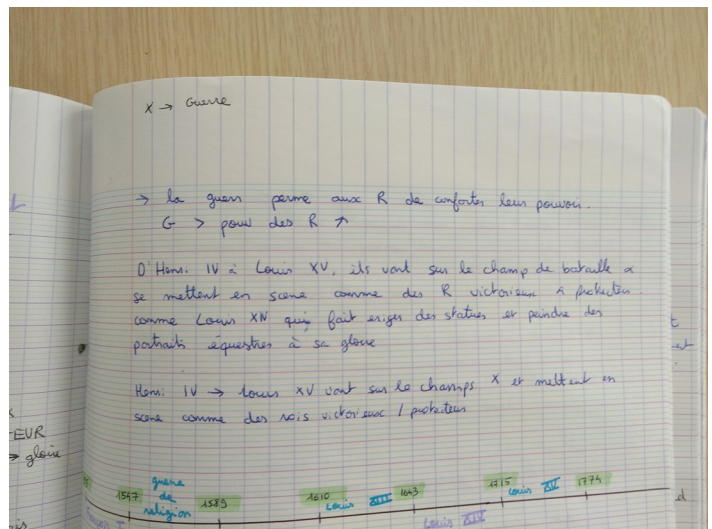 X → Guerre
→ la guerr perme aux R de conforter leur pouvoir.
G > pouv des R ↗
D'Henri IV à Louis XV, ils vont sur le champ de bataille &
se mettent en scene comme des R victorieux & protecteur.
comme Louis XIV qui fait eriger des statues et peindre des
portraits équestres à sa gloire
Henri IV → Louis XV vont sur le champs X et mettent en
scene comme des rois victorieux / protecteur
EUR
→ gloire
1547
guerre
de
religion
1589
1610
Louis XIII
1643
Louis XIV
1715
Louis XV
1774